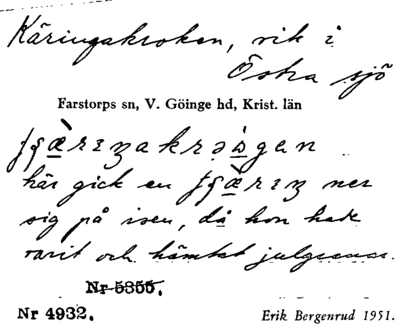 Käringakroken, vik i
Östra sjö
Farstorps sn, V. Göinge hd, Krist. län
här gick en ner
sig på isen, då hon hade
varit och hämtat julgranar.
Nr 5355.
Nr 4932.
Erik Bergenrud 1951.